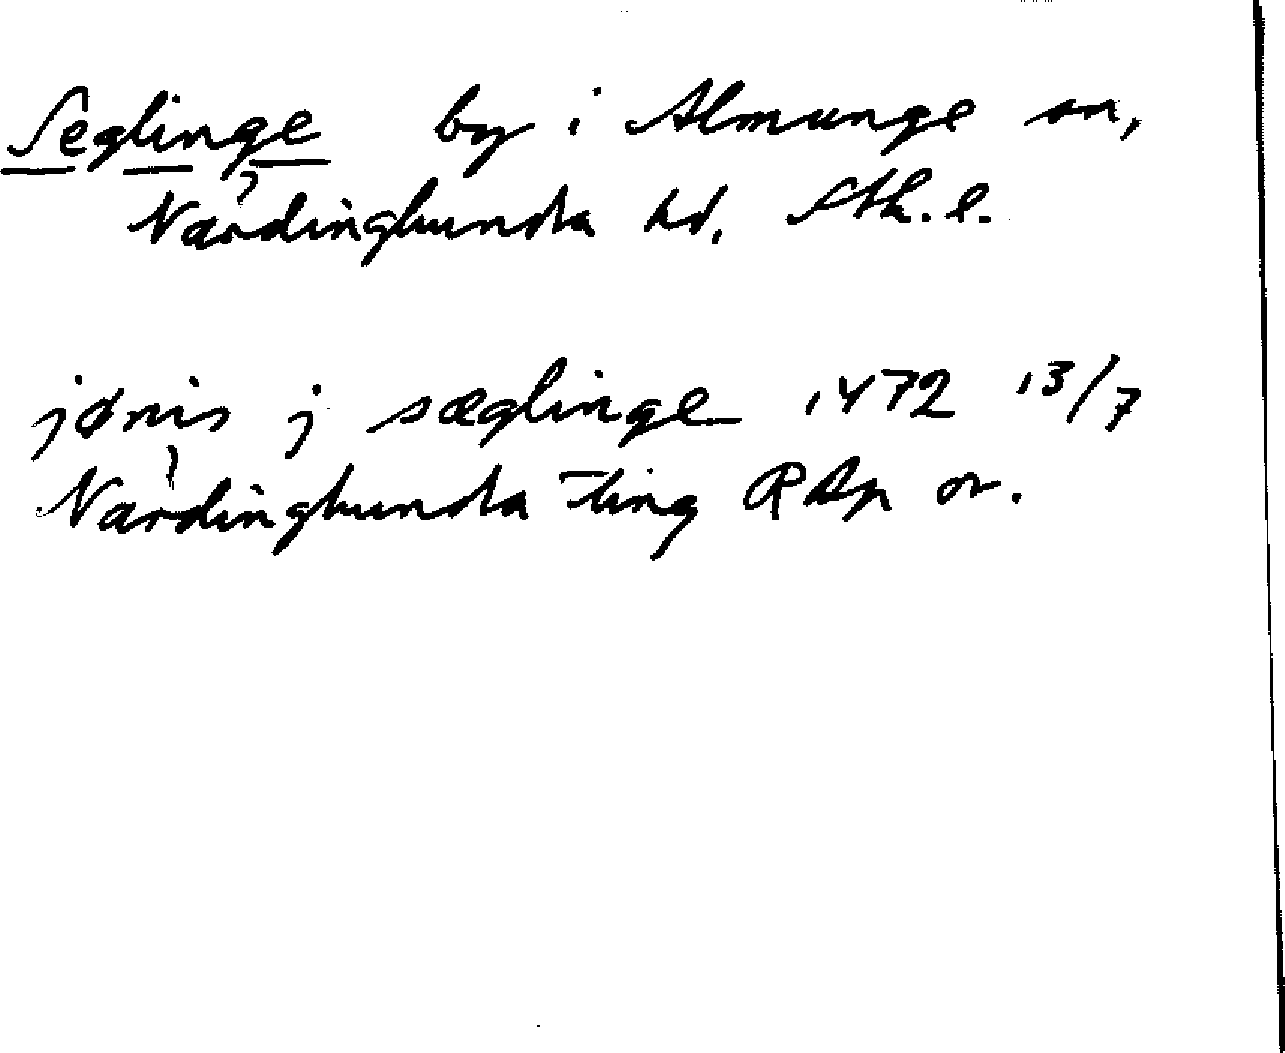 Seglinge by i Almunge sn,
Närdinghundra hd, Sth.l.
jønis j sæglinge 1472 13/7
Närdinghundra ting RAp or.